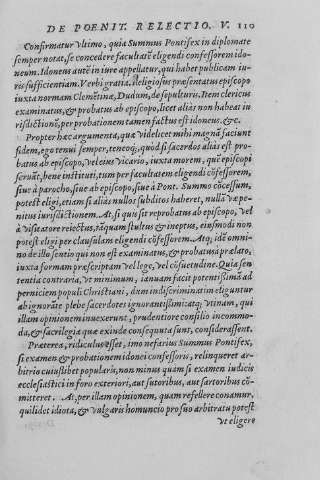 DE POENIT. RELECTIO. V. 110
Confirmatur vltimo, quia Summus Pontifex in diplomate
semper notat, se concedere facultatẽ eligendi confessorem ido-
neum. Idoneus autẽ in iure appellatur, qui habet publicam iu-
ris sufficientiam. Verbi gratia. Religiosus præsentatus episcopo
iuxta normam Clemẽtinæ, Dudum, de sepulturis. Item clericus
examinatus, & probatus ab episcopo, licet alias non habeat iu-
risdictionẽ, per probationem tamen factus est idoneus. &c.
Propter hæc argumenta, quæ videlicet mihi magnã faciunt
fidem, ego tenui semper, teneoq;, quòd si sacerdos aliàs est pro-
batus ab episcopo, vel eius vicario, iuxta morem, quẽ episcopi
seruãt, bene instituti, tum per facultatem eligendi cõfessorem,
siue à parocho, siue ab episcopo, siue à Pont. Summo cõcessum,
potest eligi, etiam si aliàs nullos subditos haberet, nullã væpe-
nitus iurisdictionem. At, si quis sit reprobatus ab episcopo, vel
à visitatore reiectus, tãquam stultus & ineptus, eiusmodi non
potest eligi per clausulam eligendi cõfessorem. Atq; idẽ omni-
no de illo sentio qui non est examinatus, & probatus a prælato,
iuxta formam præscriptam vel lege, vel cõsuetudine. Quia sen-
tentia contraria, vt minimum, ianuam facit potentissimã ad
perniciem populi Christiani, dum indiscriminatim eliguntur
ab ignorãte plebe sacerdotes ignorantissimi: atq; vtinam, qui
illam opinionem inuexerunt, prudentiore consilio incommo-
da, & sacrilegia quæ exinde consequuta sunt, considerassent.
Præterea, ridiculus esset, imo nefarius Summus Pontifex,
si examen & probationem idonei confessoris, relinqueret ar-
bitrio cuiuslibet popularis, non minus quàm si examen iudicis
ecclesiastici in foro exteriori, aut sutoribus, aut sartoribus cõ-
mitteret. At, per illam opinionem, quam refellere conamur,
quilibet idiota, & vulgaris homuncio pro suo arbitratu potest
vt eligere